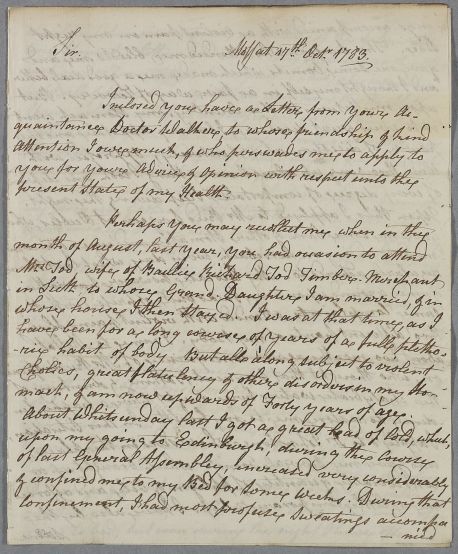 Sir.
Moffat 17th Octr 1783.
Inclosed you have a Letter from your Ac-
quaintance Doctor Walker to whose friendship & kind
Attention I owe much, & who perswades me to apply to
you for your Advice & Opinion with respect unto the
present State of my Health.
Perhaps you may recollect me when in the
month of August, last year, you had occasion to attend
Mrs Tod, wife of Baillie Richard Tod Timber Merchant
in Leith to whose Grand-Daughter I am married, & in
whose house I then stayed. I was at that time, as I
have been for a long course of years of a full pletho-
ric habit of body. But all along subject to violent
Cholics, great flatulency & other disorders in my Sto-
mach, & am now upwards of Forty years of age.
About Whitsunday last I got a great load of Cold, which,
upon my going to Edinburgh, during the Course
of last General Assembley, increased very considerably
& confined me to my Bed for some Weeks. During that
confinement, I had most profuse Sweatings accompa
-nied